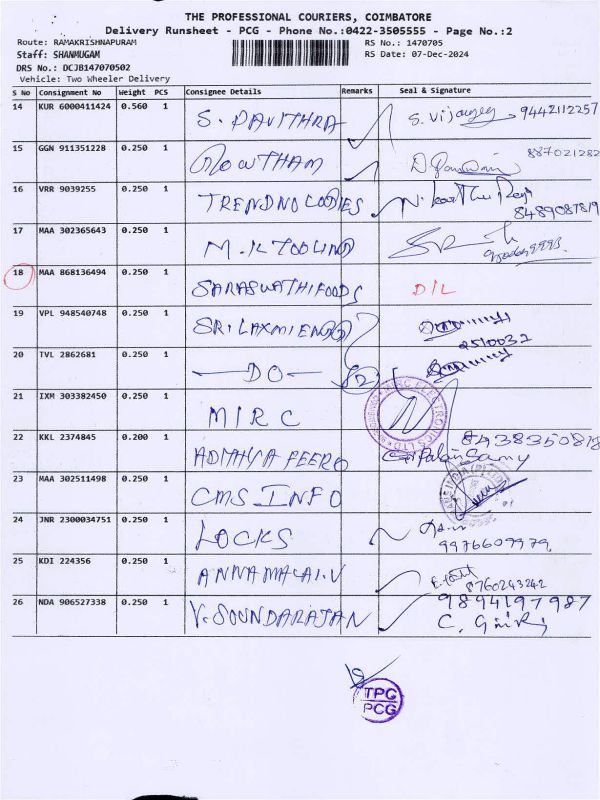 THE PROFESSIONAL COURIERS, COIMBATORE
Delivery Runsheet - PCG - Phone No.:0422-3505555 - Page No.:2
Route: RAMAKRISHNAPURAM RS No.: 1470705
Staff: SHANMUGAM RS Date: 07-Dec-2024
DRS No.: DCJB147070502
Vehicle: Two Wheeler Delivery
S No Consignment No Weight PCS Consignee Details Remarks Seal & Signature
14 KUR 6000411424 0.560 1 S. PAVITHRA 9442112257
15 GGN 911351228 0.250 1 GOWTHAM 887021282
16 VRR 9039255 0.250 1 8489087819
17 MAA 302365643 0.250 1 M.K TOOLING
18 MAA 868136494 0.250 1 SARASWATHI FOODS D/L
19 VPL 948540748 0.250 1 SRI LAXMI ENGG
2510032
20 TVL 2862681 0.250 1 — DO — 2
21 IXM 303382450 0.250 1 MIRC
22 KKL 2374845 0.200 1 8438350818
23 MAA 302511498 0.250 1 CMS INFO
24 JNR 2300034751 0.250 1 LOCKS
9976609979
25 KDI 224356 0.250 1 ANNAMALAI.V 8760243242
26 NDA 906527338 0.250 1 V. SOUNDARAJAN 9894197987
TPC
PCG